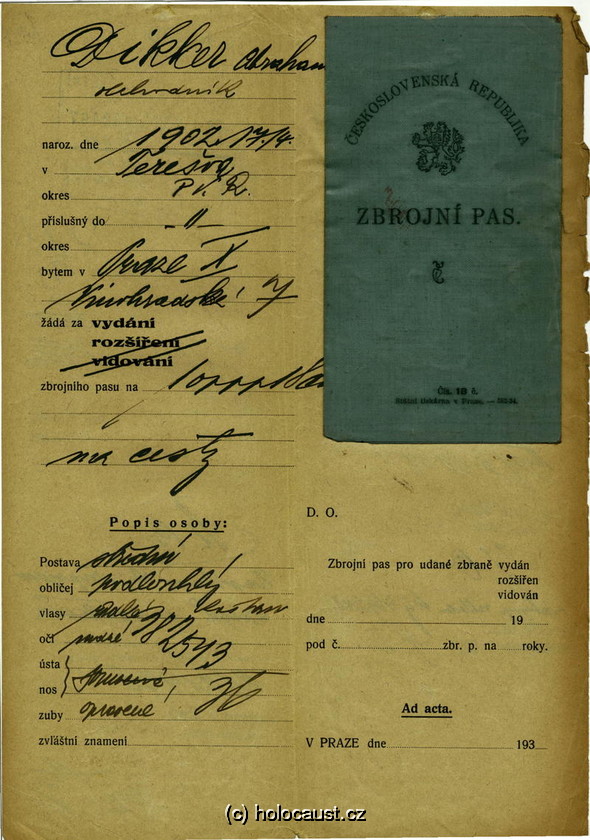 Dikker Abraham
obchodník
naroz. dne 1902 17/4.
v Terešva
okres P. R.
příslušný do -"-
okres
bytem v Praze X
Vinohradská 7
žádá za vydání
rozšíření
vidování
zbrojního pasu na
na cesty
Popis osoby:
Postava střední
obličej podlouhlý
vlasy kaštan
oči modré
ústa
nos
zuby spravené
zvláštní znamení
ČESKOSLOVENSKÁ REPUBLIKA
ZBROJNÍ PAS.
Čís. 18 č.
Státní tiskárna v Praze. —
D. O.
Zbrojní pas pro udané zbraně vydán
rozšířen
vidován
dne 19
pod č. zbr. p. na roky.
Ad acta.
V PRAZE dne 193
(c) holocaust.cz